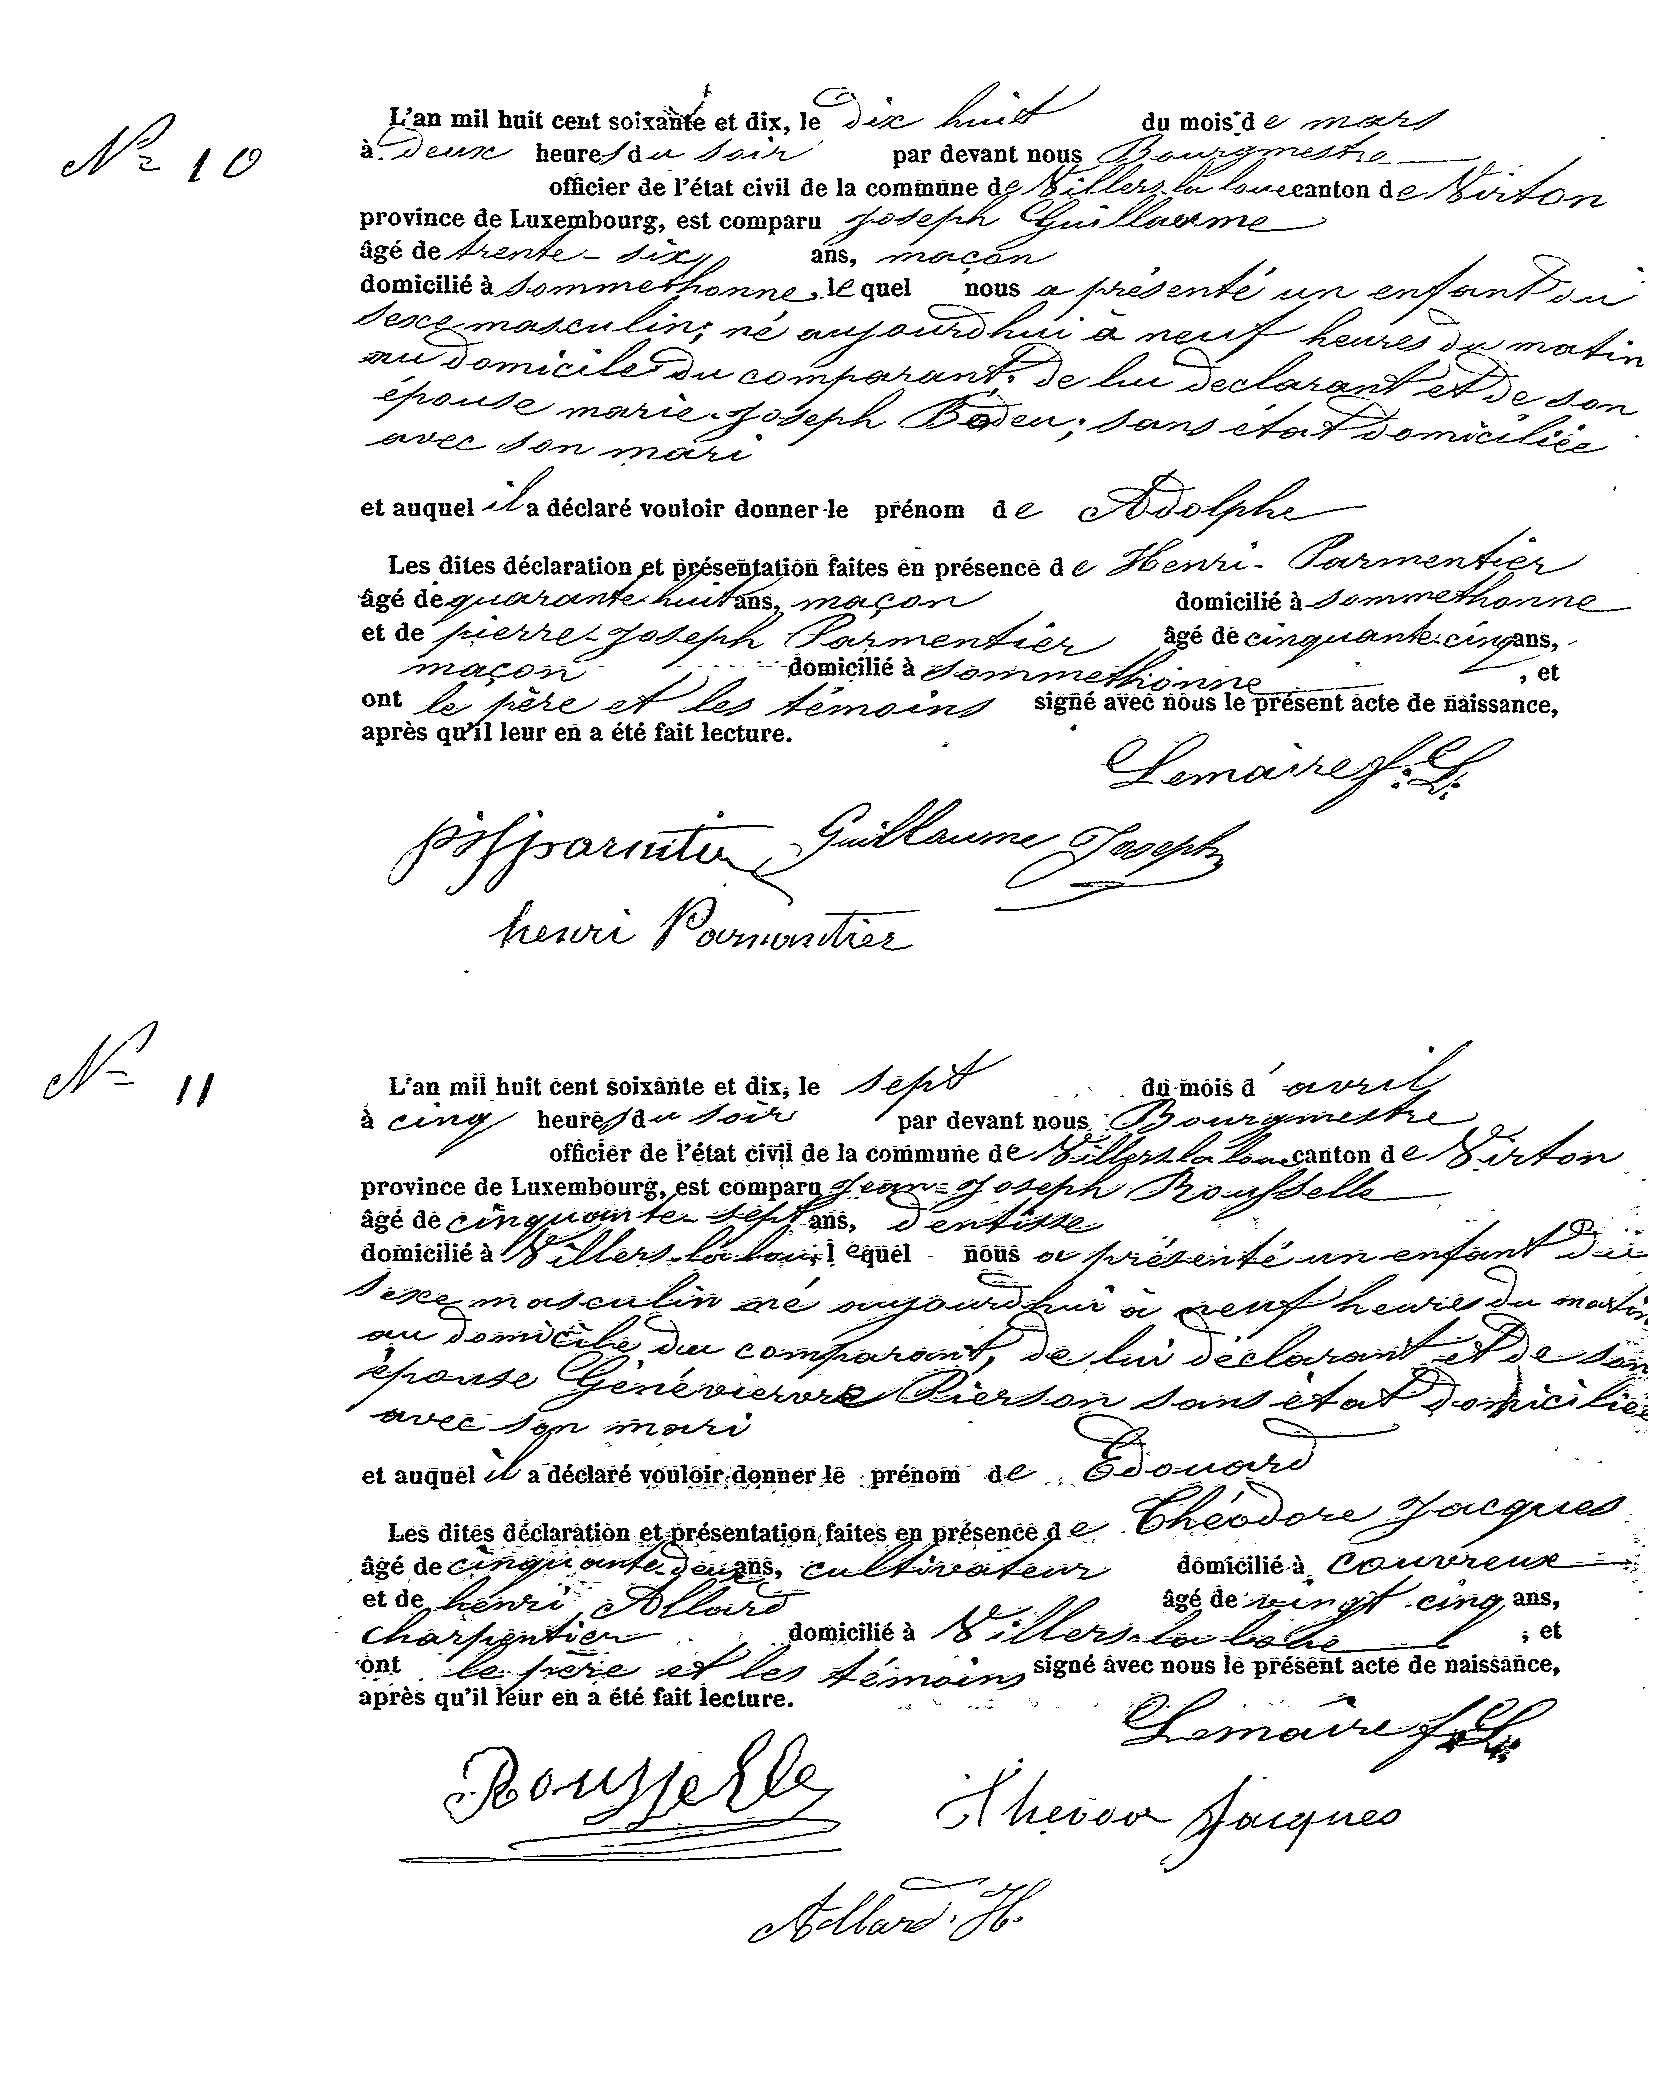 N° 10
L'an mil huit cent soixante et dix, le dix huit du mois de mars
à deux heures du soir par devant nous Bourgmestre
officier de l'état civil de la commune de Villers-la loue canton de Virton
province de Luxembourg, est comparu Joseph Guillaume
âgé de trente-six ans, maçon
domicilié à Sommethonne, lequel nous a présenté un enfant du
sexe masculin; né aujourd'hui à neuf heures du matin
au domicile du comparant, de lui declarant et de son
épouse marie-Joseph Bodeu; sans état domiciliée
avec son mari
et auquel il a déclaré vouloir donner le prénom de Adolphe
Les dites déclaration et présentation faites en présence de Henri-Parmentier
âgé de quarante huit ans, maçon domicilié à Sommethonne
et de pierre-Joseph Parmentier âgé de cinquante-cinq ans,
maçon domicilié à Sommethonne, et
ont le père et les témoins signé avec nous le présent acte de naissance,
après qu'il leur en a été fait lecture.
Lemaire f. L.
Guillaume Joseph
henri Parmantier
N° 11
L'an mil huit cent soixante et dix, le sept du mois d'avril
à cinq heures du soir par devant nous Bourgmestre
officier de l'état civil de la commune de Villers la loue canton de Virton
province de Luxembourg, est comparu Jean-Joseph Rousselle
âgé de cinquante-sept ans, dentiste
domicilié à Villers-la loue, lequel nous a présenté un enfant du
sexe masculin né aujourd'hui à neuf heures du matin
au domicile du comparant, de lui déclarant et de son
épouse Pierson sans état domiciliée
avec son mari
et auquel il a déclaré vouloir donner le prénom de Edouard
Les dites déclaration et présentation faites en présence de Théodore Jacques
âgé de cinquante-deux ans, cultivateur domicilié à couvreux
et de henri Allard âgé de vingt cinq ans,
charpentier domicilié à Villers-la, et
ont le père et les témoins signé avec nous le présent acte de naissance,
après qu'il leur en a été fait lecture.
Lemaire f. L.
Rousselle
Jacques
Allard. H.